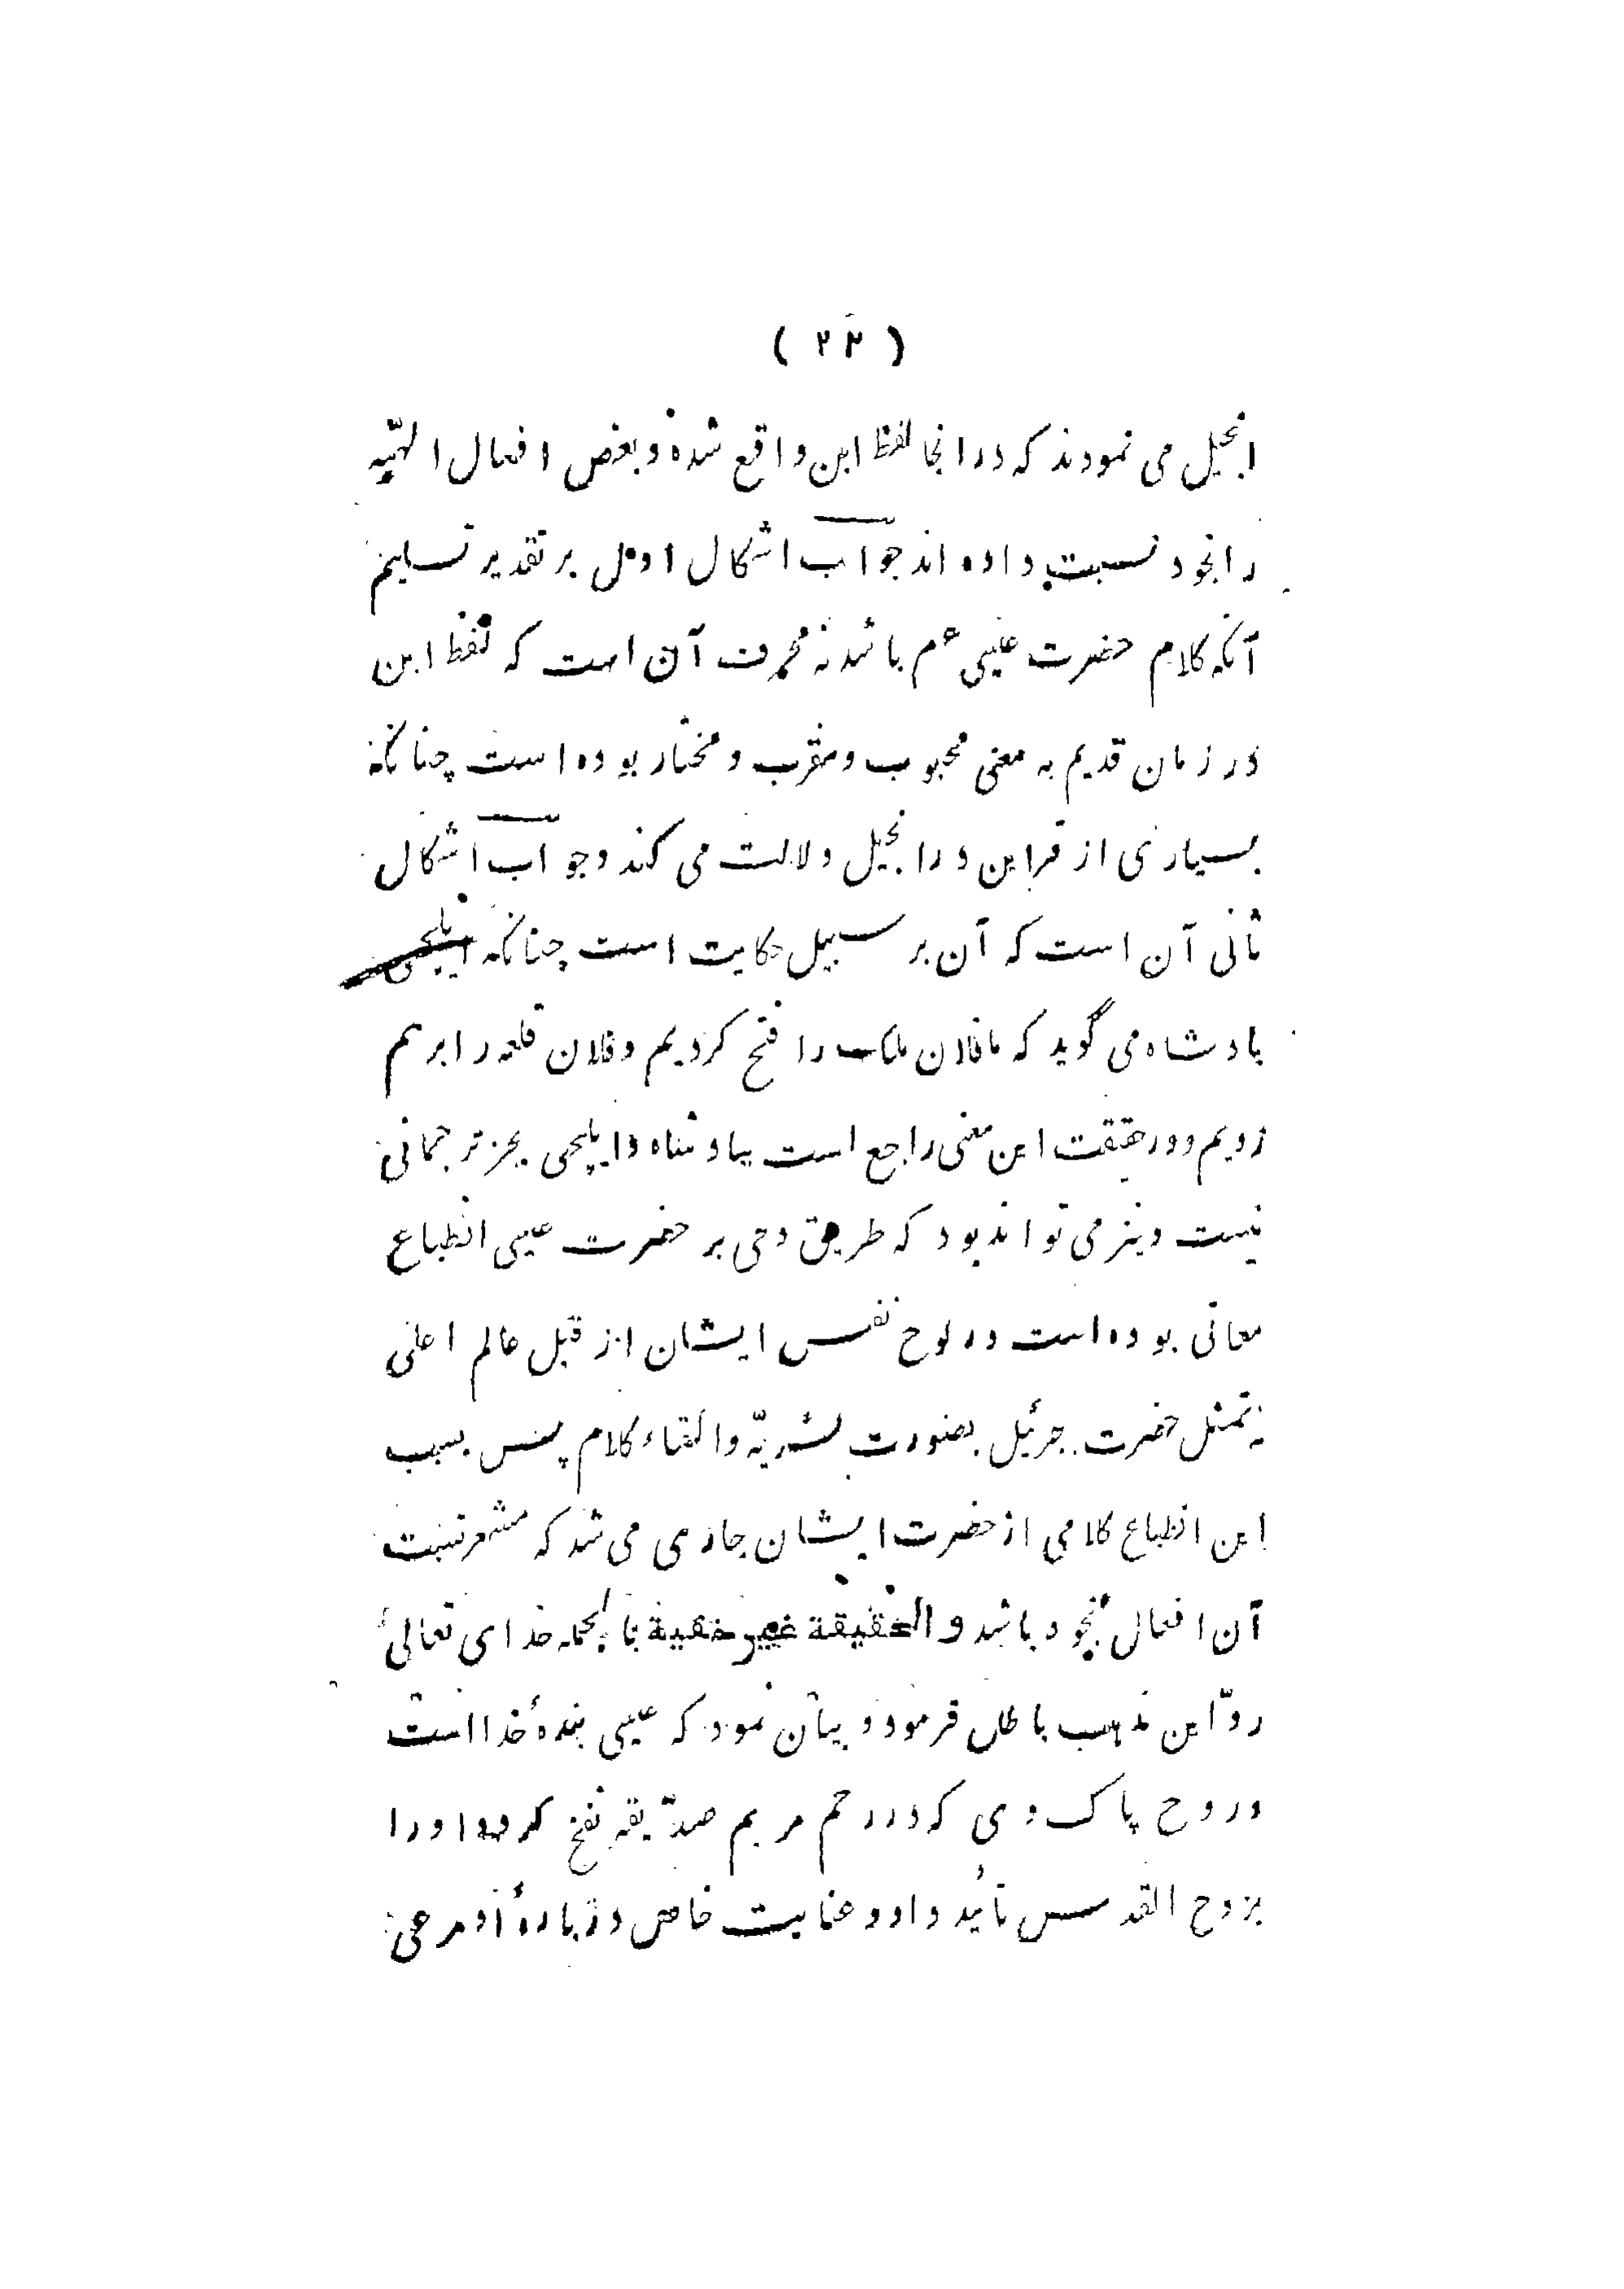 ( ۲۲ )
انجیل می نمودند که در انجا لفظ ابن واقع شده و بعض افعال الهیّه
را بخود نسبت داده اند جواب اشکال اول بر تقدیر تسلیم
آنکه کلام حضرت عیسی عم باشد نه محرف آن است که لفظ ابن
در زمان قدیم به معنی محبوب و مقرب و مختار بوده است چنانکه
بسیاری از قراین در انجیل دلالت می کند وجواب اشکال
ثانی آن است که آن بر سبیل حکایت است چنانکه ایلچی
بادشاه می گوید که ما فلان ملک را فتح کردیم و فلان قلعه را برهم
زدیم و در حقیقت این معنی راجع است ببادشاه و ایلچی بجز ترجمانی
نیست و نیز می تواند بود که طریق وحی بر حضرت عیسی انطباع
معانی بوده است در لوح نفس ایشان از قبل عالم اعلی
نه تمثل حضرت جبرئیل بصورت بشریّه و القاء کلام پس بسبب
این انطباع کلامی از حضرت ایشان جاری می شد که مشعر نسبت
آن افعال بخود باشد والحقيقة غير خفية بالجمله خدای تعالی
ردّ این مذهب باطل فرمود و بیان نمود که عیسی بندهٔ خدا است
و روح پاک وی که در رحم مریم صدّیقه نفخ کرد و اورا
بروح القدس تائید داد و عنایت خاص در بارهٔ او مرعی